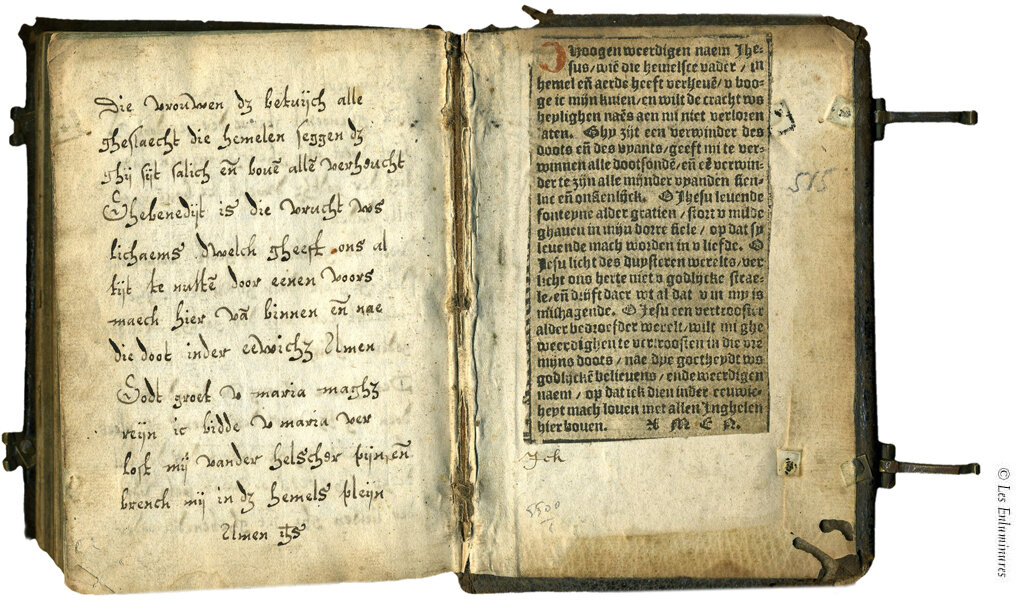 Die vrouwen dz betuijch alle
gheslaecht die hemelen seggen dz
ghij sijt salich eñ bouē allē verhoucht
Ghebenedijt is die vrucht vvs
lichaems dwelch gheeft ons al
tijt te nuttē door eenen voors
maech hier vā binnen eñ nae
die doot inder eewichz Amen
Godt groet v maria maghz
reijn ic bidde v maria ver
lost mij vander helscher pijn eñ
brench mij in dz hemels pleijn
Amen ihs
Noogen weerdigen naem Ihe-
sus/wiē die hemelsce vader/in
hemel eñ aerde heeft verheuē/v boo-
ge ic mijn knien/en wilt de cracht ws
heylighen naēs aen mi niet verloren
laten. Ghy zijt een verwinder des
doots eñ des vyants/geeft mi te ver-
winnen alle dootsondē/eñ eē verwin-
der te zijn alle mijnder vyanden sien-
lijc eñ onsienlijck. O Ihesu leuende
fonteyne alder gratien/stort v milde
ghauen in mijn dorre siele/op dat sy
leuende mach worden in v liefde. O
Jesu licht des duysteren werelts/ver
licht ons herte met v godlijcke strae-
le/eñ drijft daer wt al dat v in my is
mishagende. O Jesu een vertrooster
alder bedroefder werelt/wilt mi ghe
weerdighen te vertroosten in die vre
mijns doots/nae dye goetheydt ws
godlijckē belieuens/ende weerdigen
naem/op dat ick dien inder eeuwic-
heyt mach louen met allen Inghelen
hier bouen. A M E N.
Ick
515
5500
© Les Enluminures